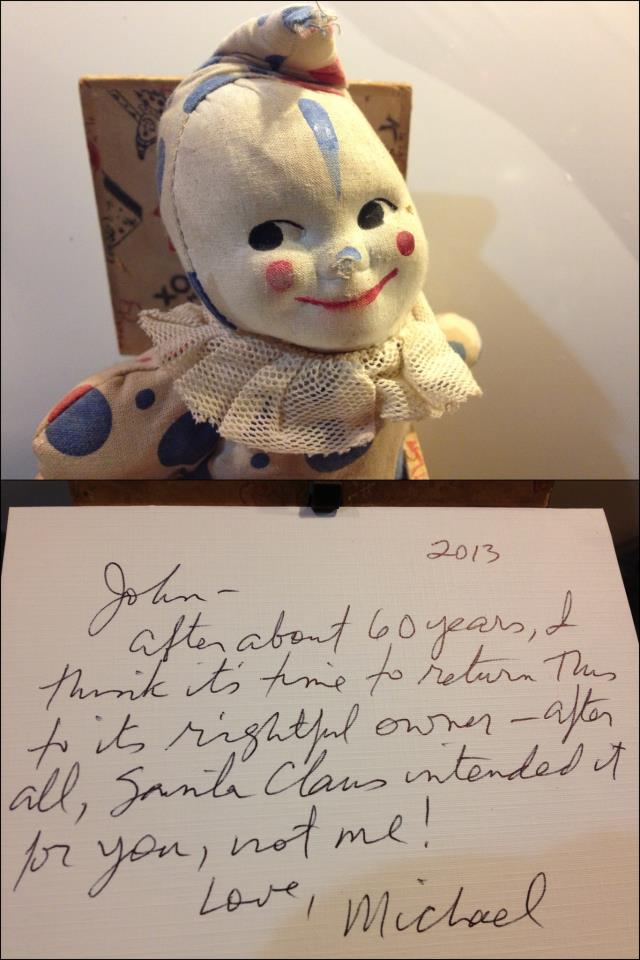 K
XO
2013
John-
after about 60 years, I
think it's time to return this
to its rightful owner - after
all, Santa Claus intended it
for you, not me!
Love,
Michael